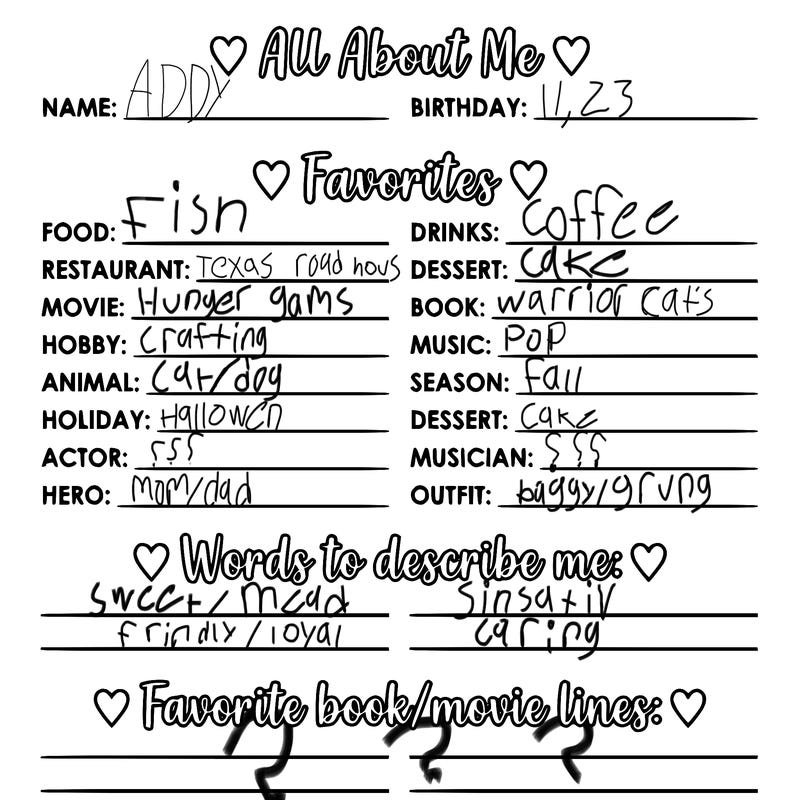 ♡ All About Me ♡
NAME: ADDY BIRTHDAY: 11,23
♡ Favorites ♡
FOOD: Fish DRINKS: Coffee
RESTAURANT: Texas road hous DESSERT: cake
MOVIE: Hunger gams BOOK: warrior cats
HOBBY: crafting MUSIC: POP
ANIMAL: cat/dog SEASON: Fall
HOLIDAY: Hallowen DESSERT: cake
ACTOR: ??? MUSICIAN: ???
HERO: mom/dad OUTFIT: baggy/grung
♡ Words to describe me: ♡
sweet/ sinsativ
frindly/loyal caring
♡ Favorite book/movie lines: ♡
? ? ?